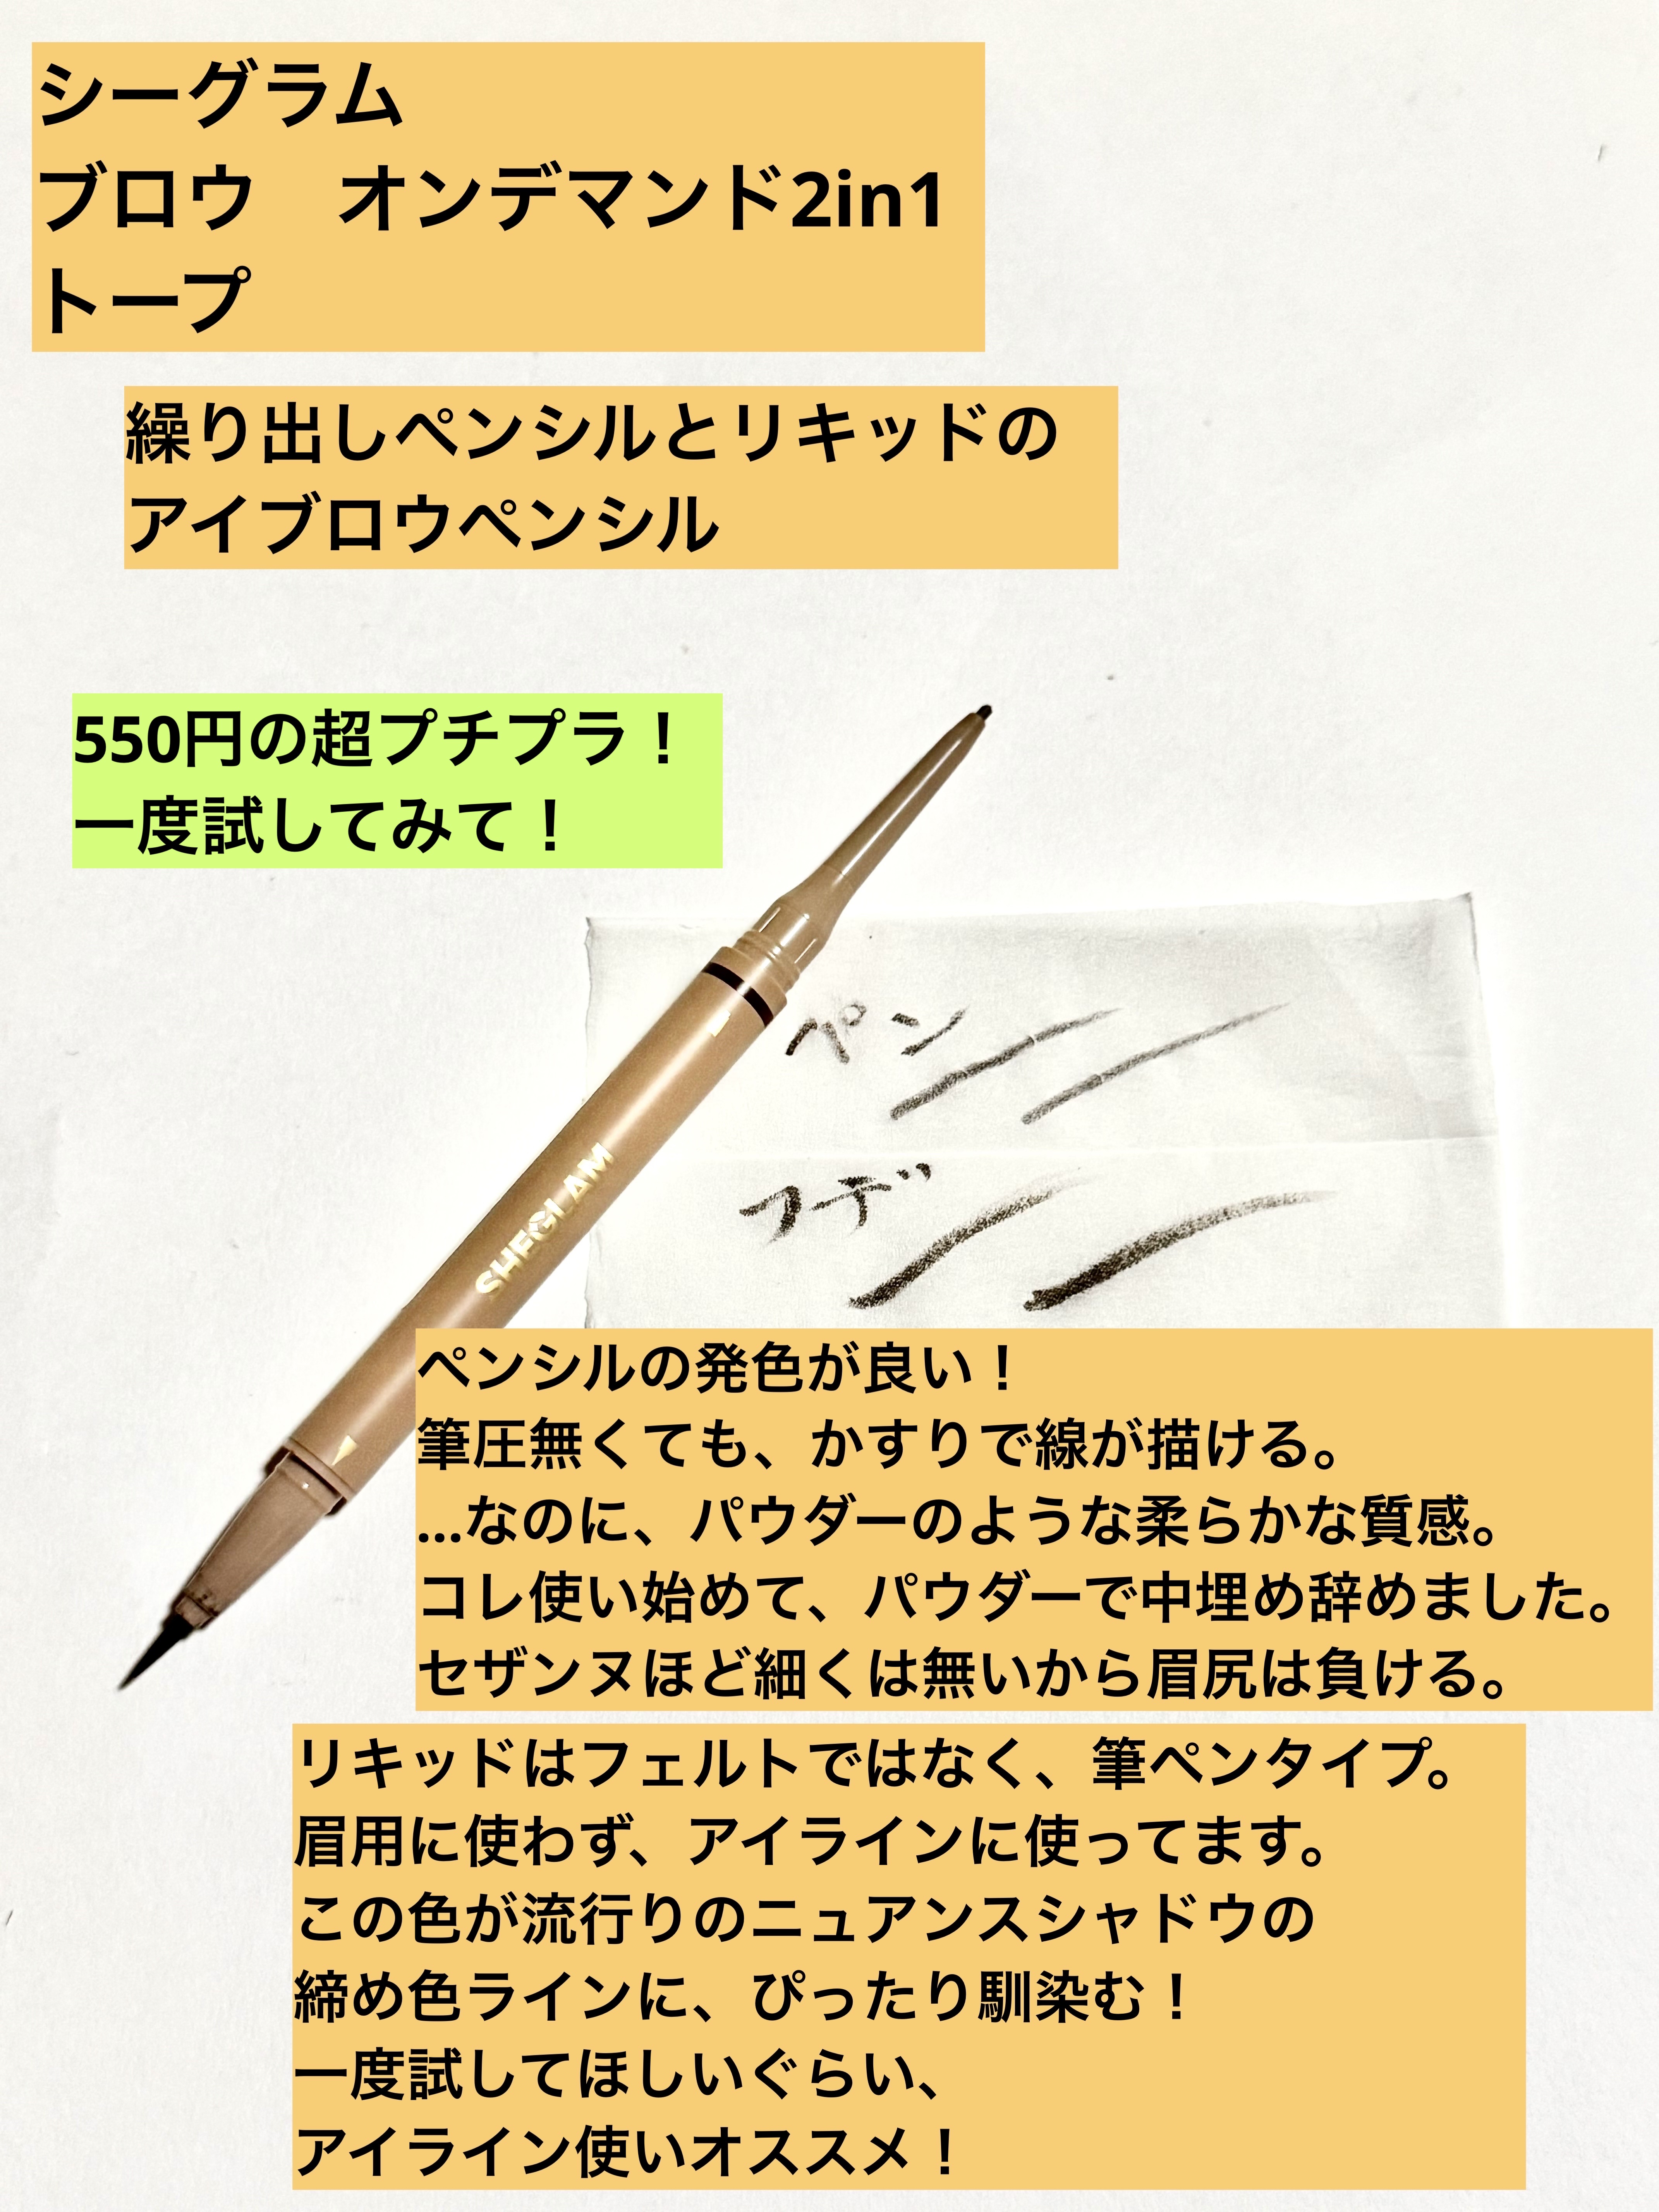 シーグラム
ブロウ　オンデマンド2in1
トープ
繰り出しペンシルとリキッドの
アイブロウペンシル
550円の超プチプラ！
一度試してみて！
ペン
フデ
SHEGLAM
ペンシルの発色が良い！
筆圧無くても、かすりで線が描ける。
...なのに、パウダーのような柔らかな質感。
コレ使い始めて、パウダーで中埋め辞めました。
セザンヌほど細くは無いから眉尻は負ける。
リキッドはフェルトではなく、筆ペンタイプ。
眉用に使わず、アイラインに使ってます。
この色が流行りのニュアンスシャドウの
締め色ラインに、ぴったり馴染む！
一度試してほしいぐらい、
アイライン使いオススメ！